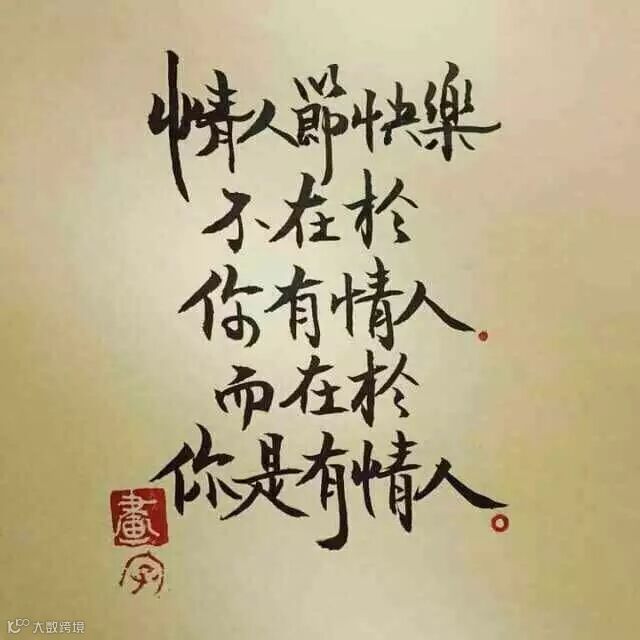 情人節快樂
不在於
你有情人.
而在於
你是有情人。
畫
字
大数跨境